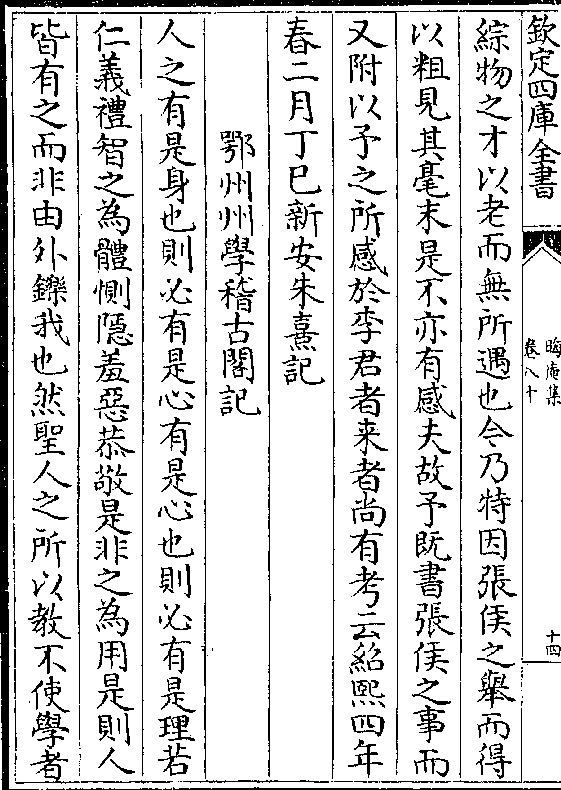 欽定四庫全書
晦庵集
卷八十
十四
綜物之才以老而無所遇也今乃特因張侯之舉而得
以粗見其毫末是不亦有感夫故予既書張侯之事而
又附以予之所感於李君者来者尚有考云紹熙四年
春二月丁巳新安朱熹記
鄂州州學稽古閣記
人之有是身也則必有是心有是心也則必有是理若
仁義禮智之為體惻隠羞惡恭敬是非之為用是則人
皆有之而非由外鑠我也然聖人之所以教不使學者